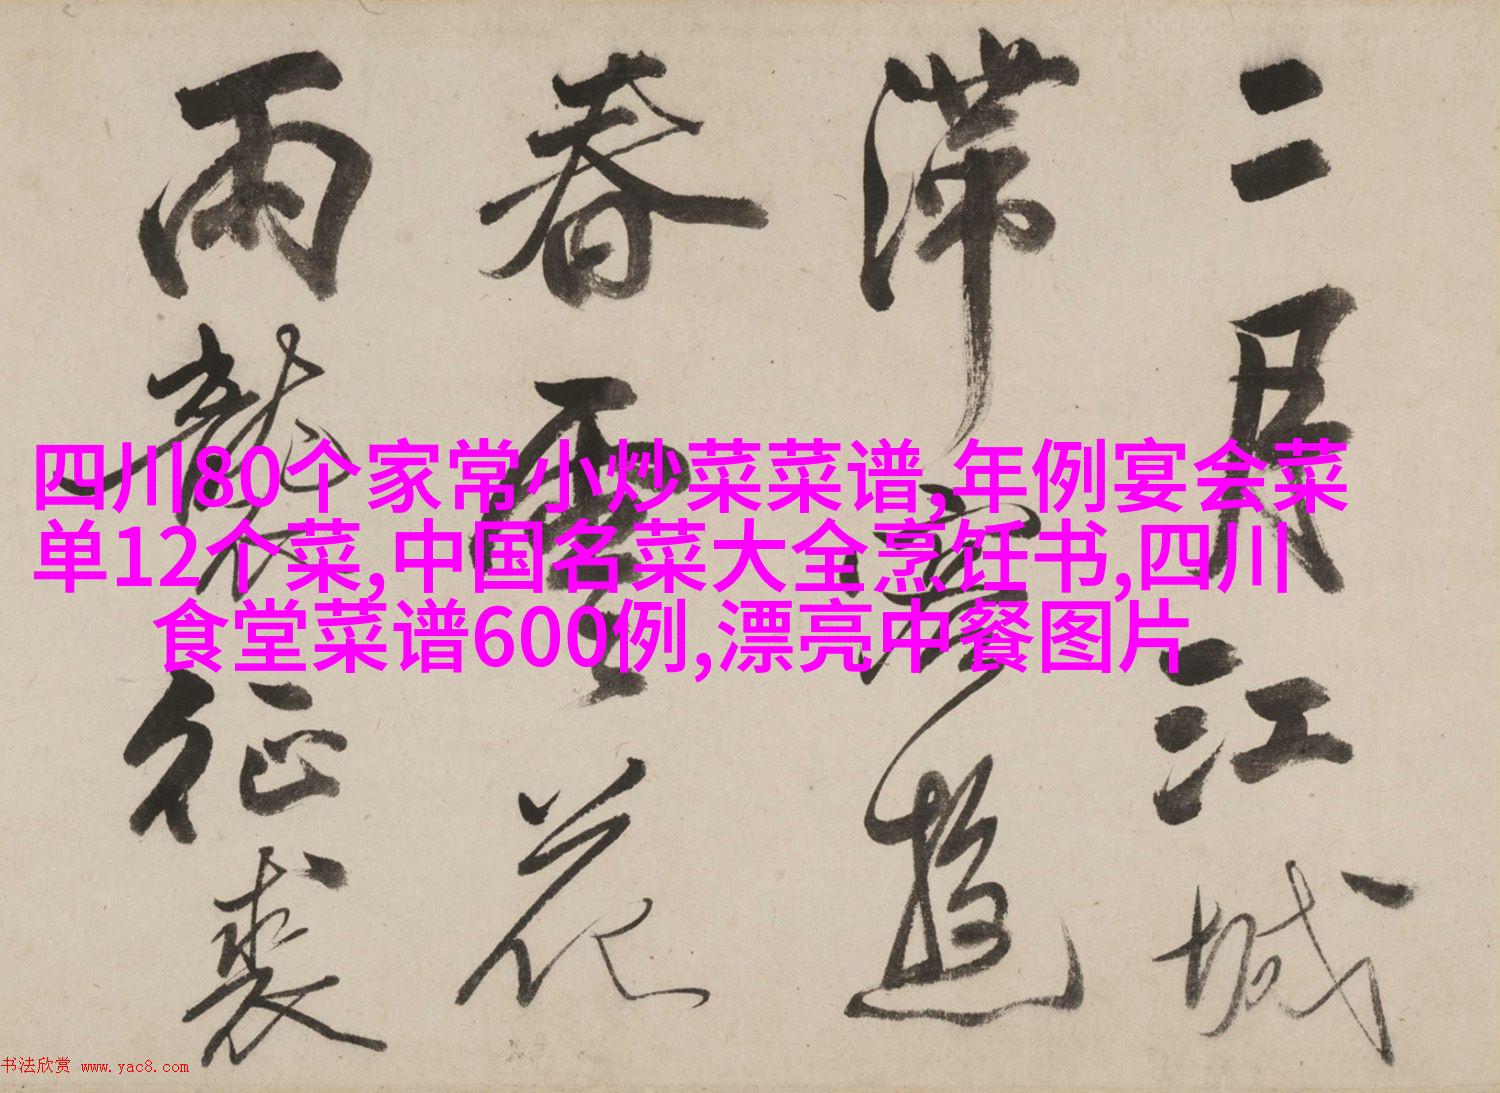 二月江城
滯遊
春花
雨襲征裘
四川80个家常小炒菜菜谱,年例宴会菜
单12个菜,中国名菜大全烹饪书,四川
食堂菜谱600例,漂亮中餐图片
书法欣赏 www.yac8.com